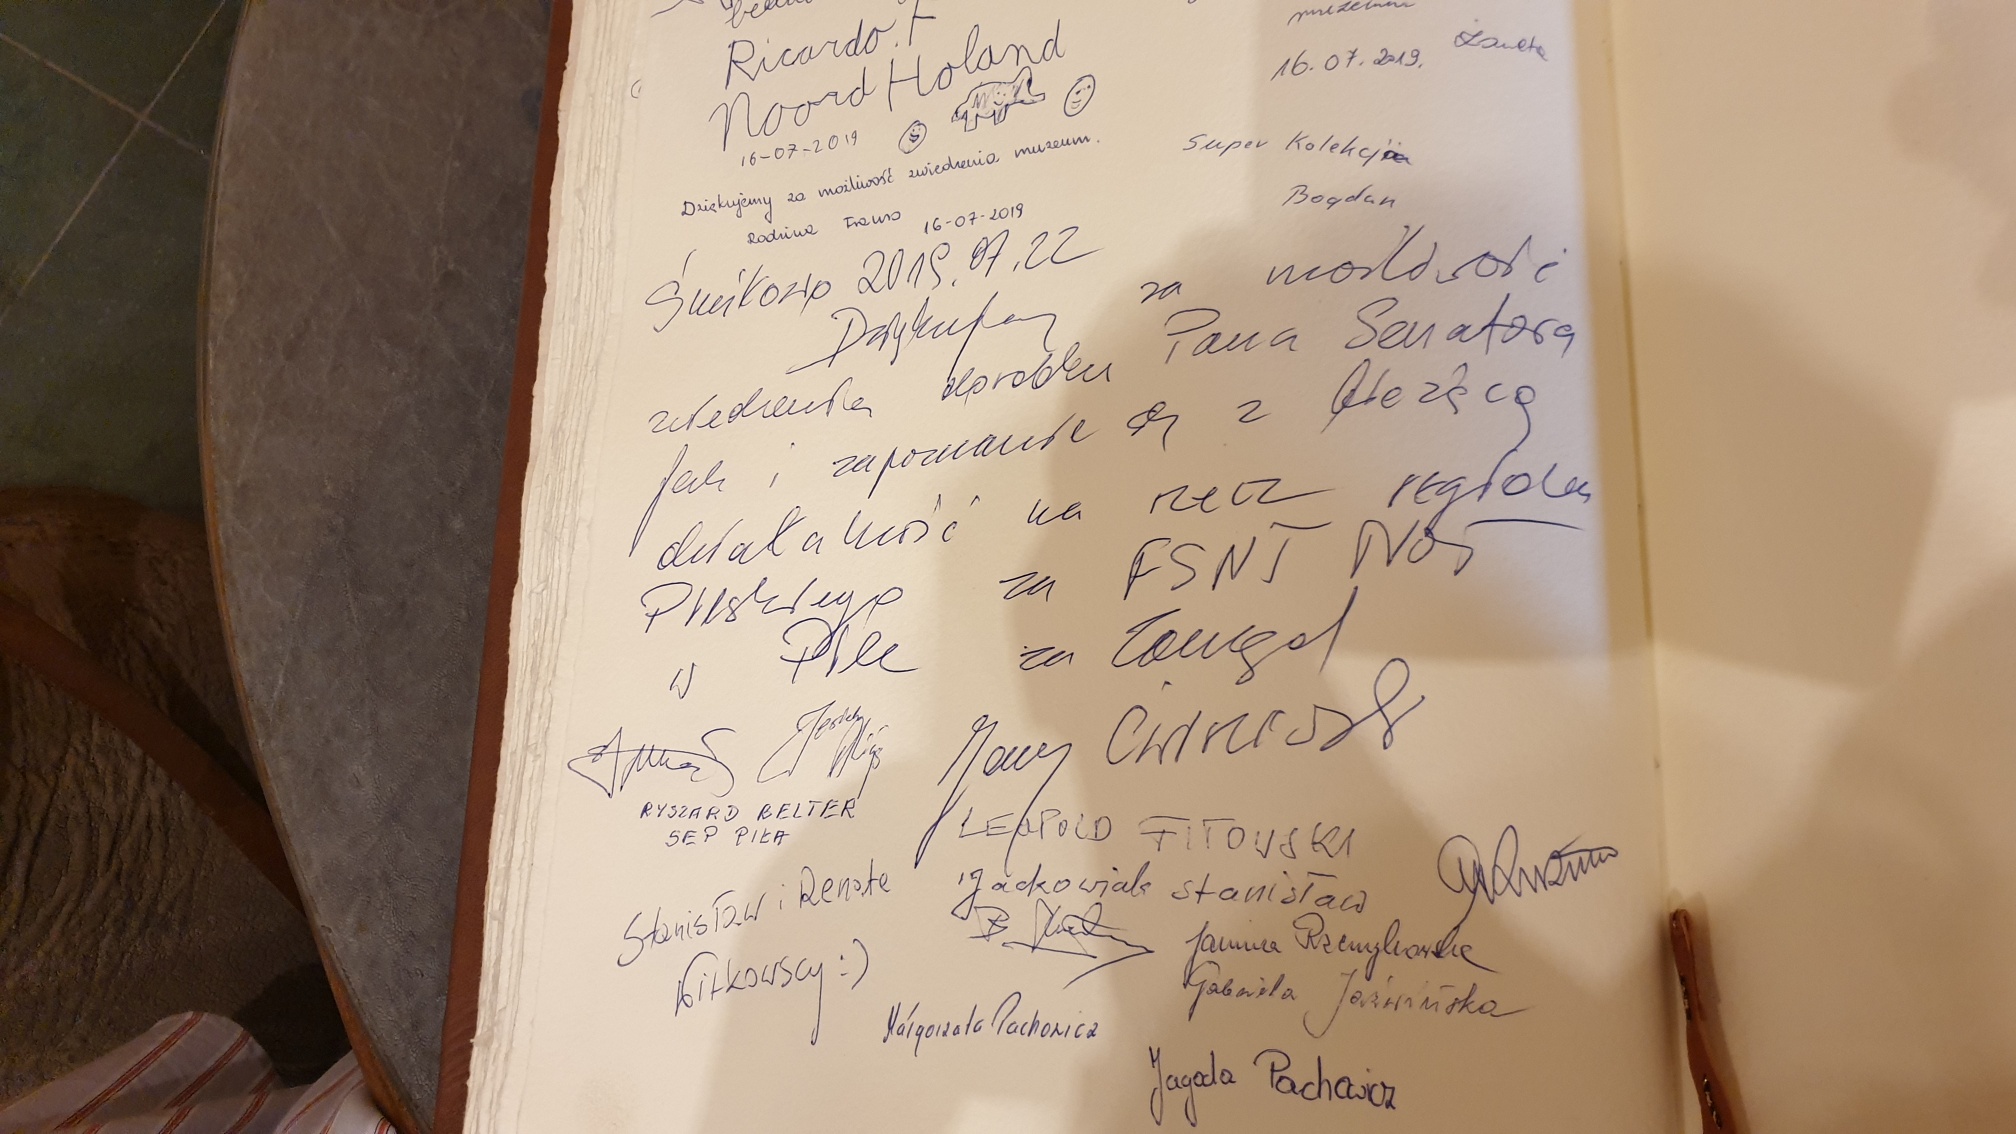 Ricardo. F
Noord Holand
16-07-2019
Dziękujemy za możliwość zwiedzenia muzeum.
Rodzina 16-07-2019
muzeum
16.07.2019. Żaneta
Super Kolekcja
Bogdan
Śmiłowo 2019.07.22
Dziękujemy za możliwość
zwiedzenia dorobku Pana Senatora
jak i zapoznanie się z bieżącą
działalność na rzecz regionu
Pilskiego za FSNT NOT
w Pile za Zarząd
RYSZARD BELTER
SEP PIŁA
LEOPOLD FITOWSKI
Stanisław i Renata
Witkowscy :)
Jackowiak Stanisław
Janina
Gabriela Jaźwińska
Małgorzata Pachowicz
Jagoda Pachowicz